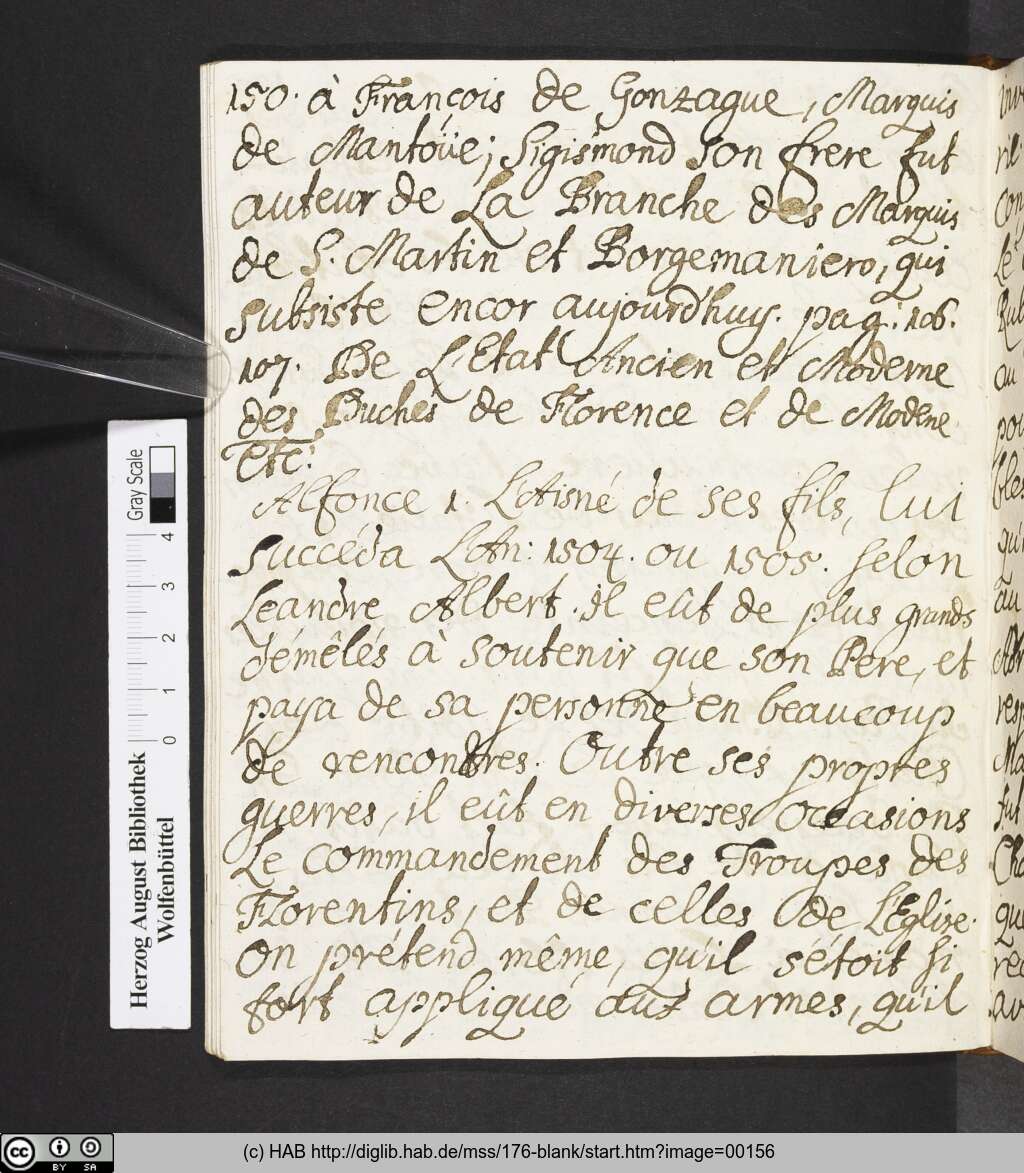 150. à François de Gonzague, Marquis
de Mantoüe; Sigismond son frere fut
auteur de La Branche des Marquis
de S. Martin et Borgemaniero, qui
subsiste encor aujourd'huy. pag. 106.
107. De L'Etat Ancien et Moderne
des Duchés de Florence et de Modene
etc:
Alfonce 1. L'Aisné de ses fils, lui
succéda L'An: 1504. ou 1505. selon
Leandre Albert. il eût de plus grands
démêlés à soutenir que son Pere, et
paya de sa personne en beaucoup
de rencontres. Outre ses propres
guerres, il eût en diverses occasions
Le commandement des Troupes des
Florentins, et de celles de L'Eglise.
On prétend même, qu'il s'étoit si
fort appliqué aux armes, qu'il
Gray Scale
0 1 2 3 4
Herzog August Bibliothek
Wolfenbüttel
cc BY SA
(c) HAB http://diglib.hab.de/mss/176-blank/start.htm?image=00156